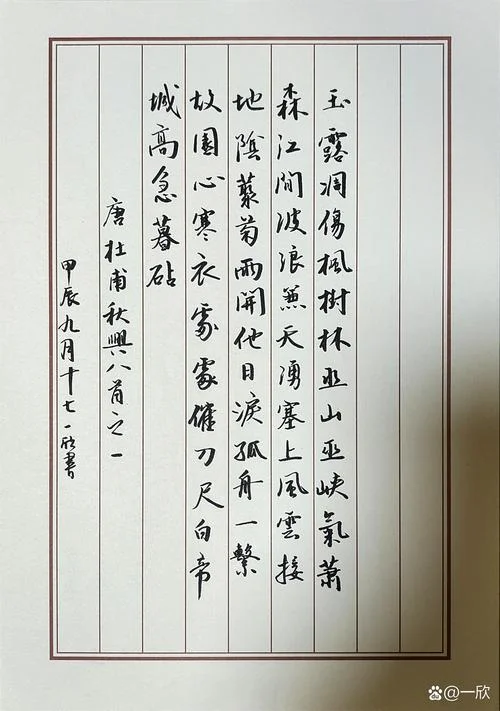 玉露凋傷楓樹林巫山巫峽氣蕭
森江間波浪兼天湧塞上風雲接
地陰藂菊兩開他日淚孤舟一繫
故園心寒衣處處催刀尺白帝
城高急暮砧
唐杜甫秋興八首之一
甲辰九月十七一欣書
@一欣